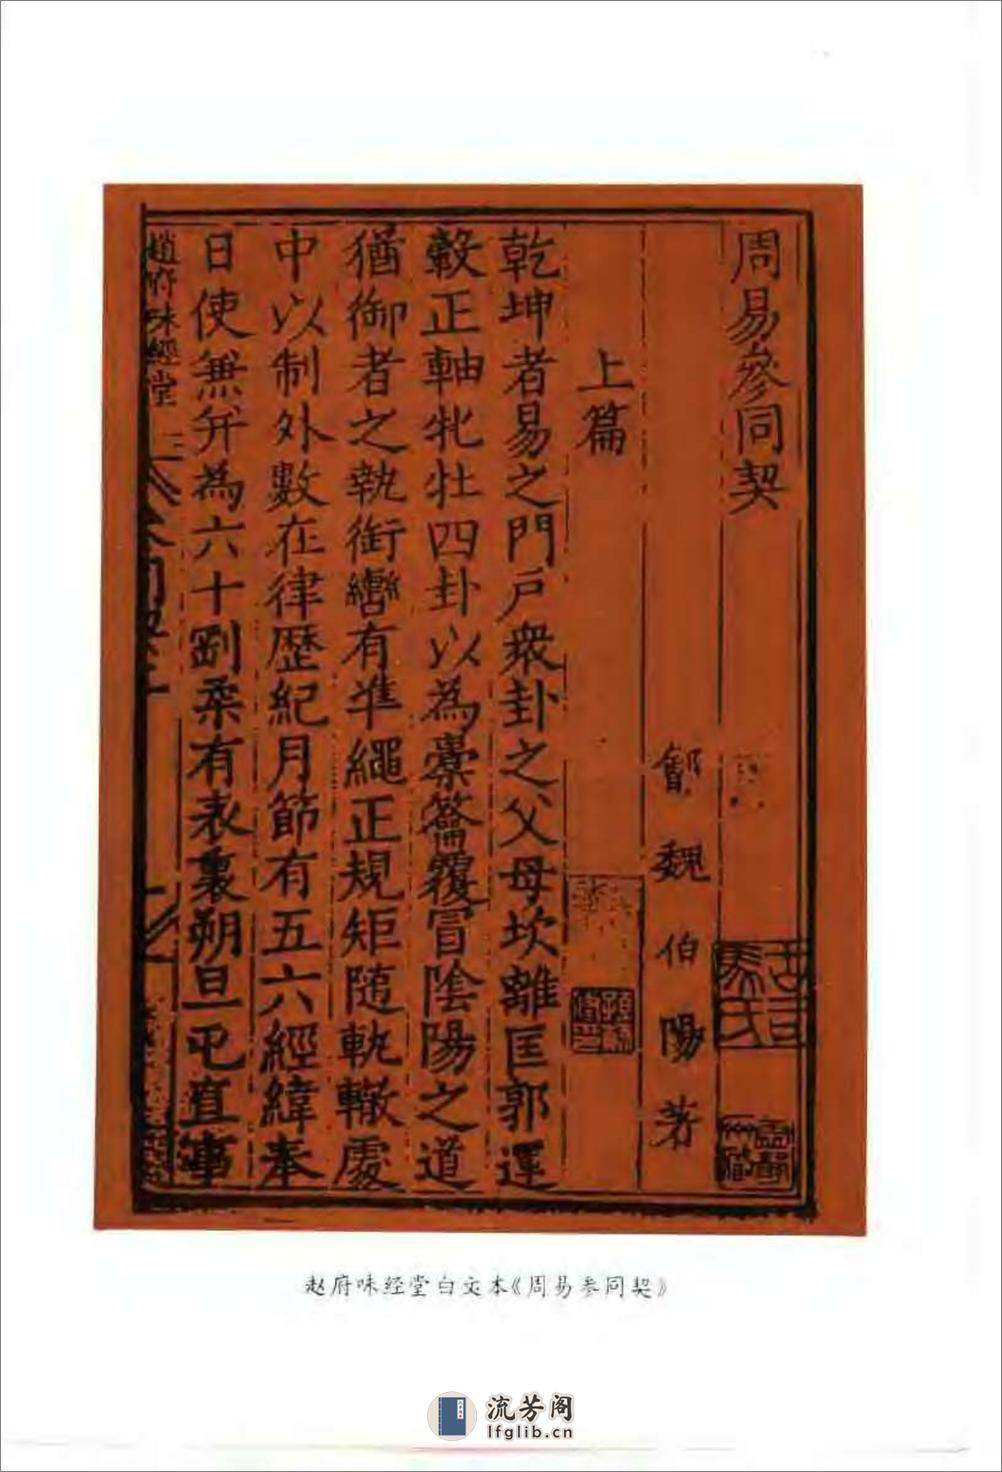 周易參同契
鄶魏伯陽著
上篇
乾坤者易之門戶衆卦之父母坎離匡郭運
轂正軸牝牡四卦以為橐籥覆冒陰陽之道
猶御者之執銜轡有準繩正規矩隨軌轍處
中以制外數在律歷紀月節有五六經緯奉
日使無弁為六十剛柔有表裏朔旦屯直事
趙府味經堂
赵府味经堂白文本《周易参同契》
流芳阁
lfglib.cn